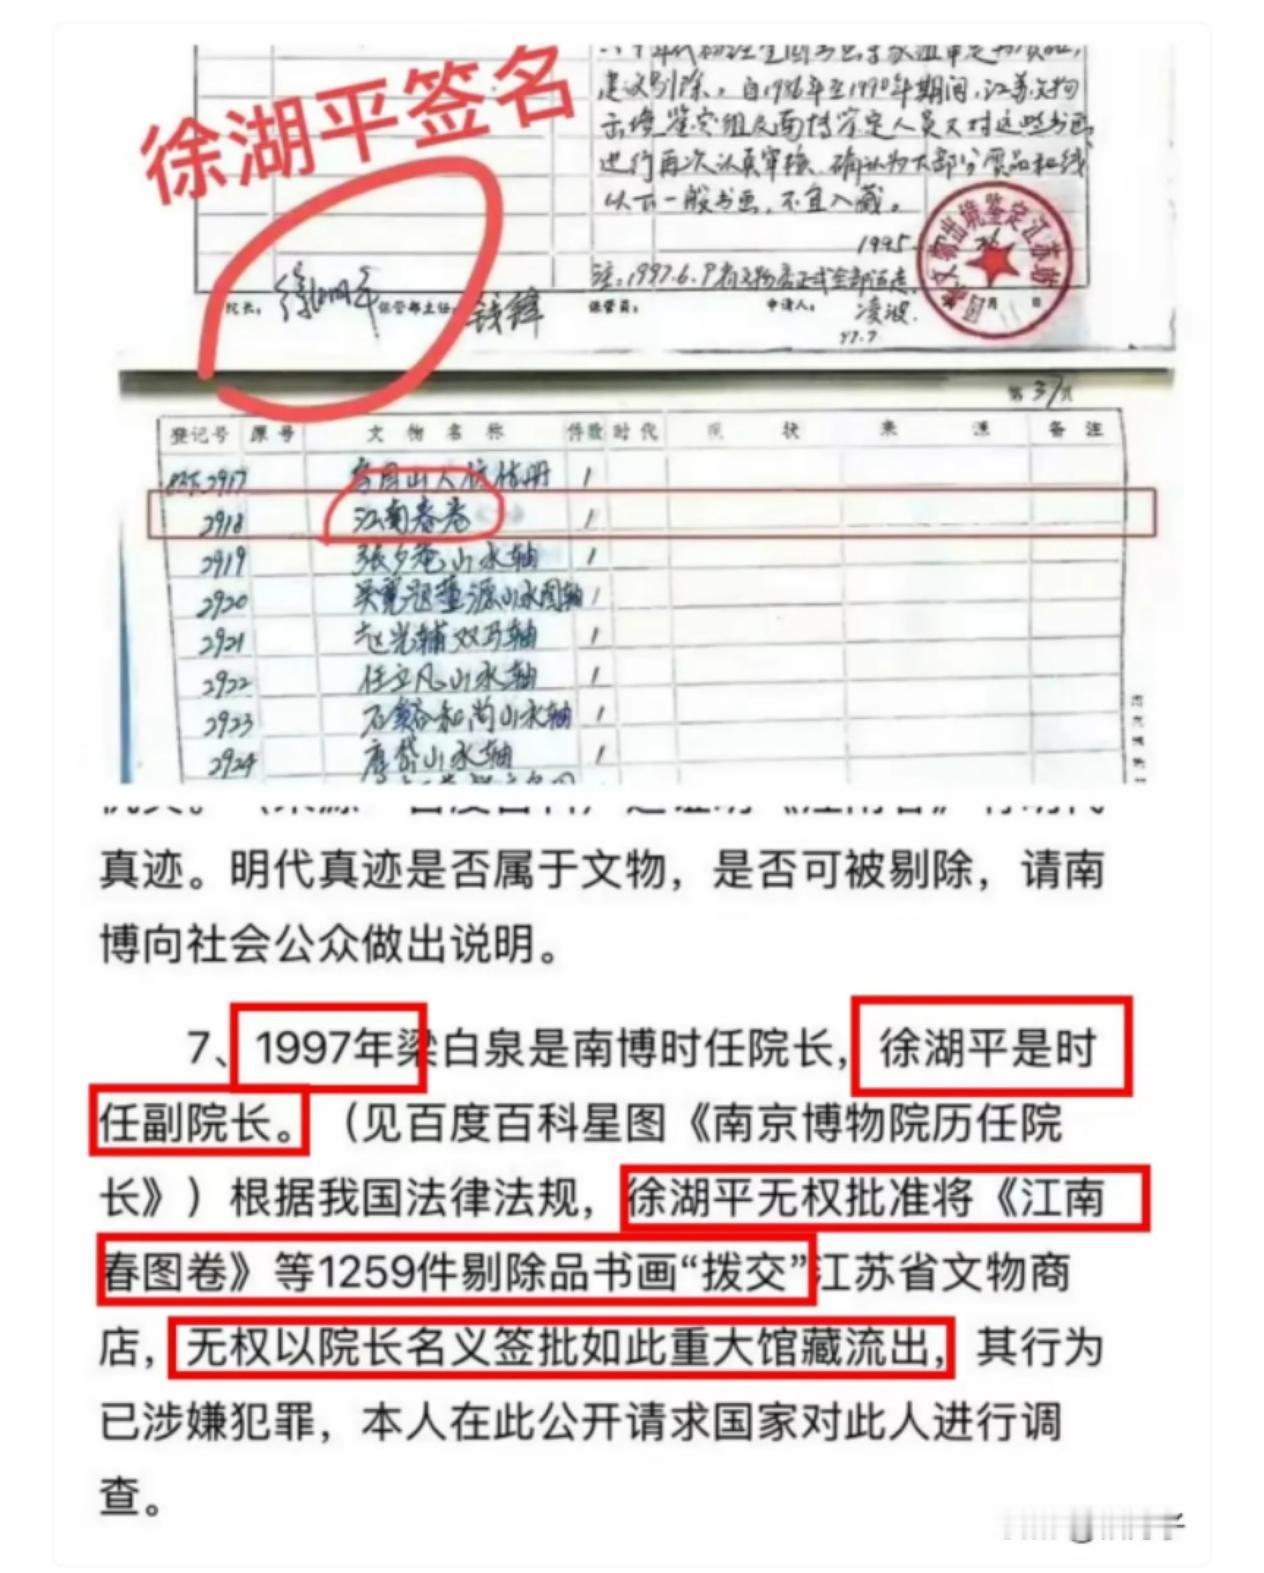 徐湖平签名
建议剔除。自1986年至1990年期间,江苏文物
出境鉴定组及南博鉴定人员又对这些书画
进行再次认真审核,确认为大部分赝品和线
以下一般书画,不宜入藏。
1995.
注:1997.6.9
院长: 徐湖平 保管部主任: 钱锋 保管员: 申请人: 凌波.
97.7
月 日
第37页
登记号 原号 文物名称 件数 时代 现状 来源 备注
2917 1
2918 江南春卷 1
2919 张夕庵山水轴 1
2920 吴宽题董源山水图轴 1
2921 赵光辅双马轴 1
2922 任立凡山水轴 1
2923 石溪和尚山水轴 1
2924 唐岱山水轴 1
真迹。明代真迹是否属于文物，是否可被剔除，请南
博向社会公众做出说明。
7、1997年梁白泉是南博时任院长，徐湖平是时
任副院长。（见百度百科星图《南京博物院历任院
长》）根据我国法律法规，徐湖平无权批准将《江南
春图卷》等1259件剔除品书画“拨交”江苏省文物商
店，无权以院长名义签批如此重大馆藏流出，其行为
已涉嫌犯罪，本人在此公开请求国家对此人进行调
查。